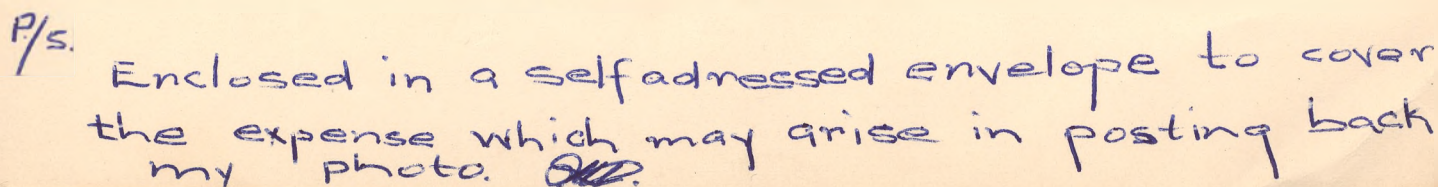 P/S.
Enclosed in a selfadressed envelope to cover
the expense which may arise in posting back
my photo.